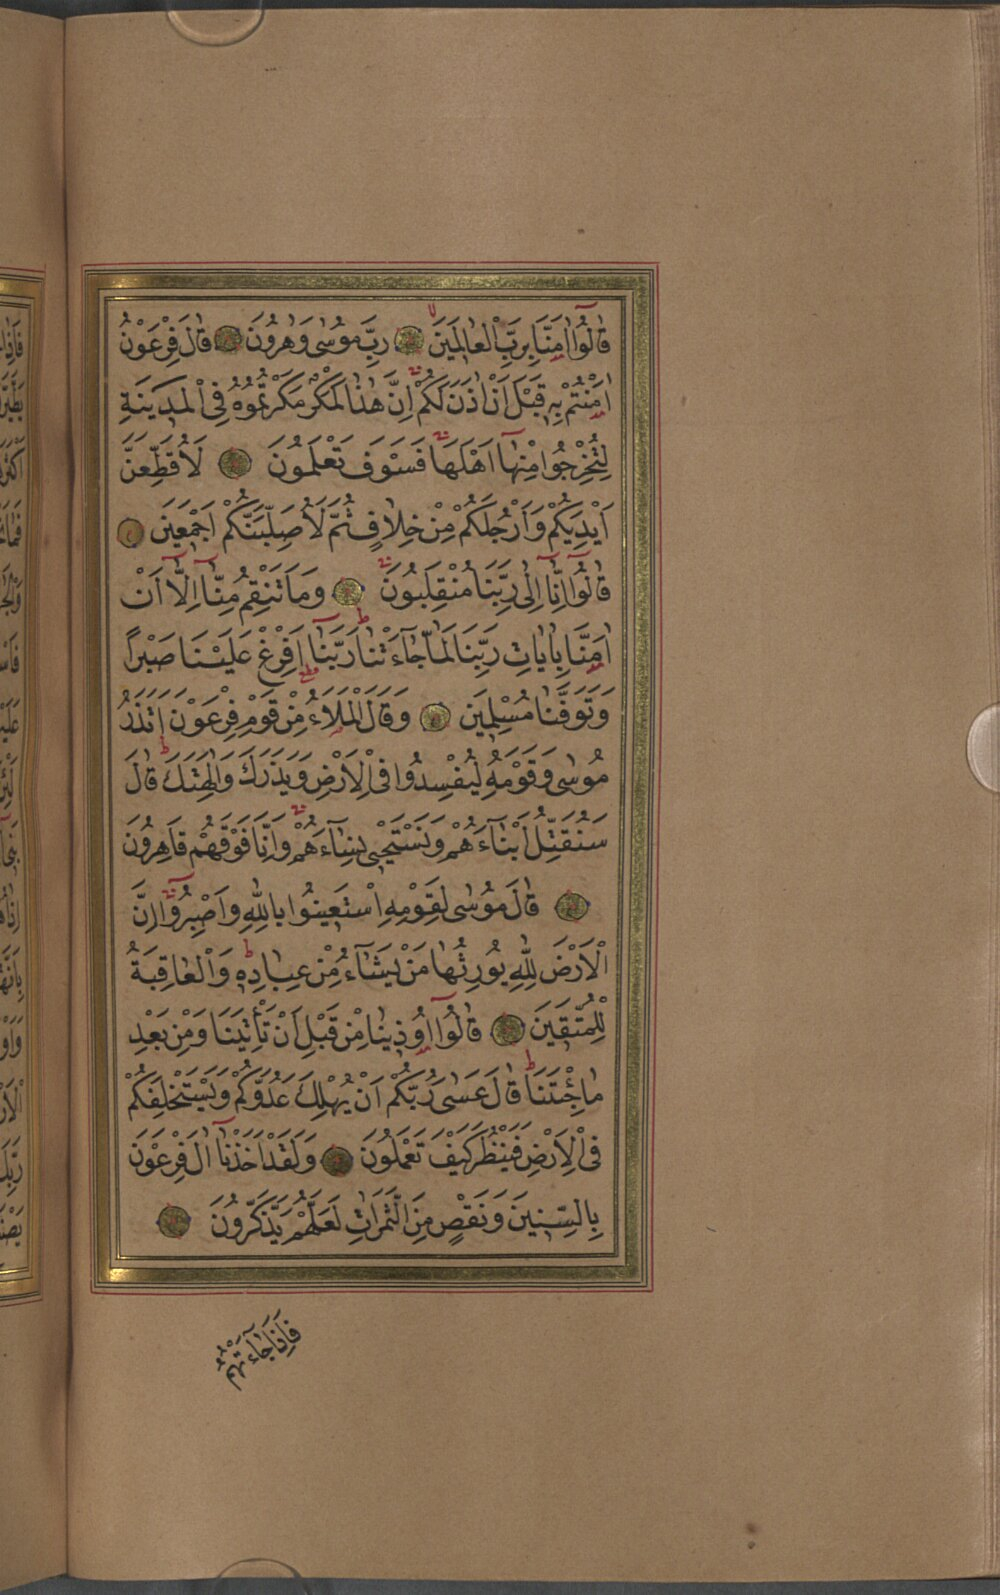 قَالُٓوا اٰمَنَّا بِرَبِّ الْعَالَمٖينَ رَبِّ مُوسٰى وَهٰرُونَ قَالَ فِرْعَوْنُ
اٰمَنْتُمْ بِهٖ قَبْلَ اَنْ اٰذَنَ لَكُمْ اِنَّ هٰذَا لَمَكْرٌ مَكَرْتُمُوهُ فِى الْمَدٖينَةِ
لِتُخْرِجُوا مِنْهَٓا اَهْلَهَا فَسَوْفَ تَعْلَمُونَ لَاُقَطِّعَنَّ
اَيْدِيَكُمْ وَاَرْجُلَكُمْ مِنْ خِلَافٍ ثُمَّ لَاُصَلِّبَنَّكُمْ اَجْمَعٖينَ
قَالُٓوا اِنَّٓا اِلٰى رَبِّنَا مُنْقَلِبُونَ وَمَا تَنْقِمُ مِنَّٓا اِلَّٓا اَنْ
اٰمَنَّا بِاٰيَاتِ رَبِّنَا لَمَّا جَٓاءَتْنَا رَبَّنَٓا اَفْرِغْ عَلَيْنَا صَبْرًا
وَتَوَفَّنَا مُسْلِمٖينَ وَقَالَ الْمَلَاُ مِنْ قَوْمِ فِرْعَوْنَ اَتَذَرُ
مُوسٰى وَقَوْمَهُ لِيُفْسِدُوا فِى الْاَرْضِ وَيَذَرَكَ وَاٰلِهَتَكَ قَالَ
سَنُقَتِّلُ اَبْنَٓاءَهُمْ وَنَسْتَحْيٖى نِسَٓاءَهُمْ وَاِنَّا فَوْقَهُمْ قَاهِرُونَ
قَالَ مُوسٰى لِقَوْمِهِ اسْتَعٖينُوا بِاللّٰهِ وَاصْبِرُوا اِنَّ
الْاَرْضَ لِلّٰهِ يُورِثُهَا مَنْ يَشَٓاءُ مِنْ عِبَادِهٖ وَالْعَاقِبَةُ
لِلْمُتَّقٖينَ قَالُٓوا اُوذٖينَا مِنْ قَبْلِ اَنْ تَاْتِيَنَا وَمِنْ بَعْدِ
مَا جِئْتَنَا قَالَ عَسٰى رَبُّكُمْ اَنْ يُهْلِكَ عَدُوَّكُمْ وَيَسْتَخْلِفَكُمْ
فِى الْاَرْضِ فَيَنْظُرَ كَيْفَ تَعْمَلُونَ وَلَقَدْ اَخَذْنَٓا اٰلَ فِرْعَوْنَ
بِالسِّنٖينَ وَنَقْصٍ مِنَ الثَّمَرَاتِ لَعَلَّهُمْ يَذَّكَّرُونَ
فَاِذَا جَٓاءَتْهُمُ